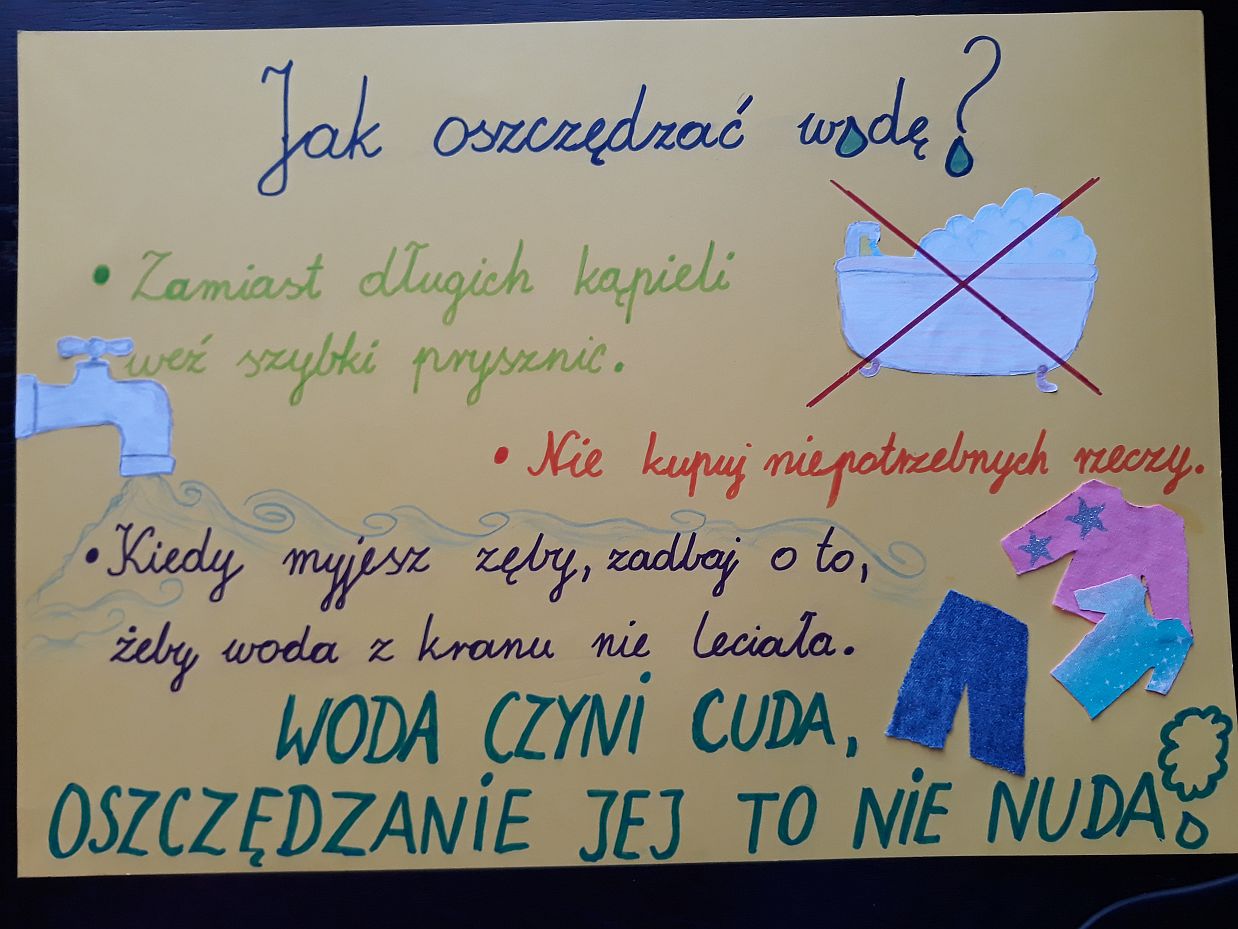 Jak oszczędzać wodę?
• Zamiast długich kąpieli
weź szybki prysznic.
• Nie kupuj niepotrzebnych rzeczy.
• Kiedy myjesz zęby, zadbaj o to,
żeby woda z kranu nie leciała.
WODA CZYNI CUDA,
OSZCZĘDZANIE JEJ TO NIE NUDA!